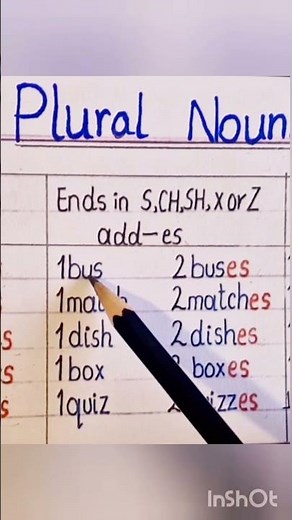 Plural Noun
Ends in S,CH,SH,X or Z
add-es
1 bus 2 buses
2 matches
s 1 dish 2 dishes
s 1 box boxes
s 1 quiz
InShOt